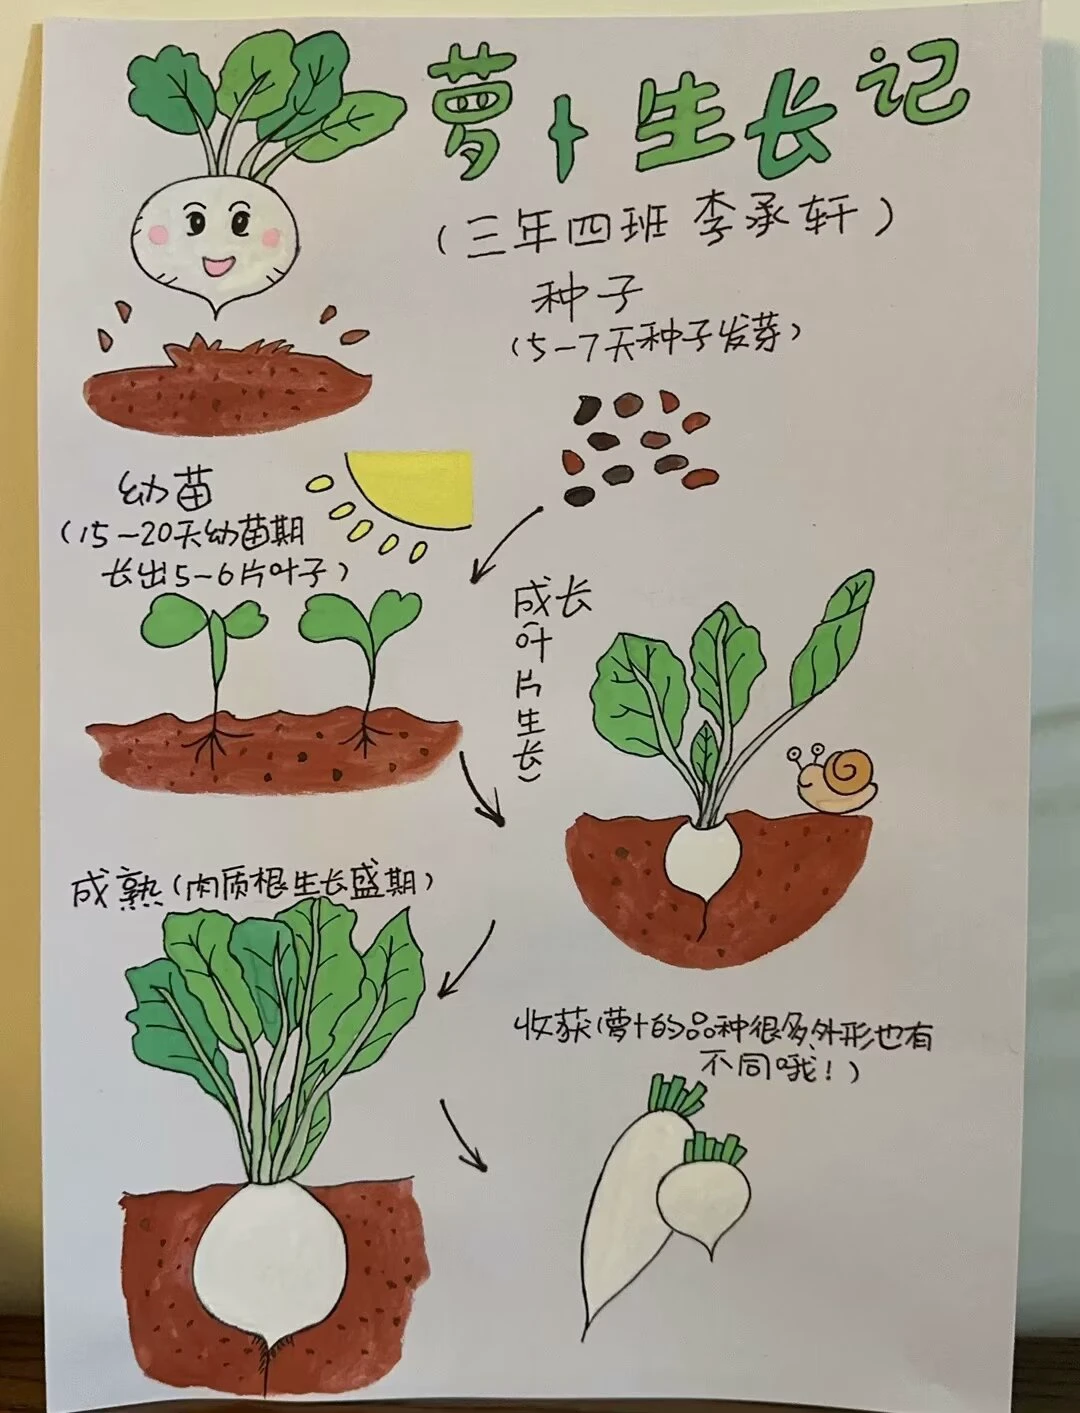 萝卜生长记
（三年四班 李承轩）
种子
（5-7天种子发芽）
幼苗
（15-20天幼苗期
长出5-6片叶子）
成长
（叶片生长）
成熟（肉质根生长盛期）
收获（萝卜的品种很多、外形也有
不同哦！）